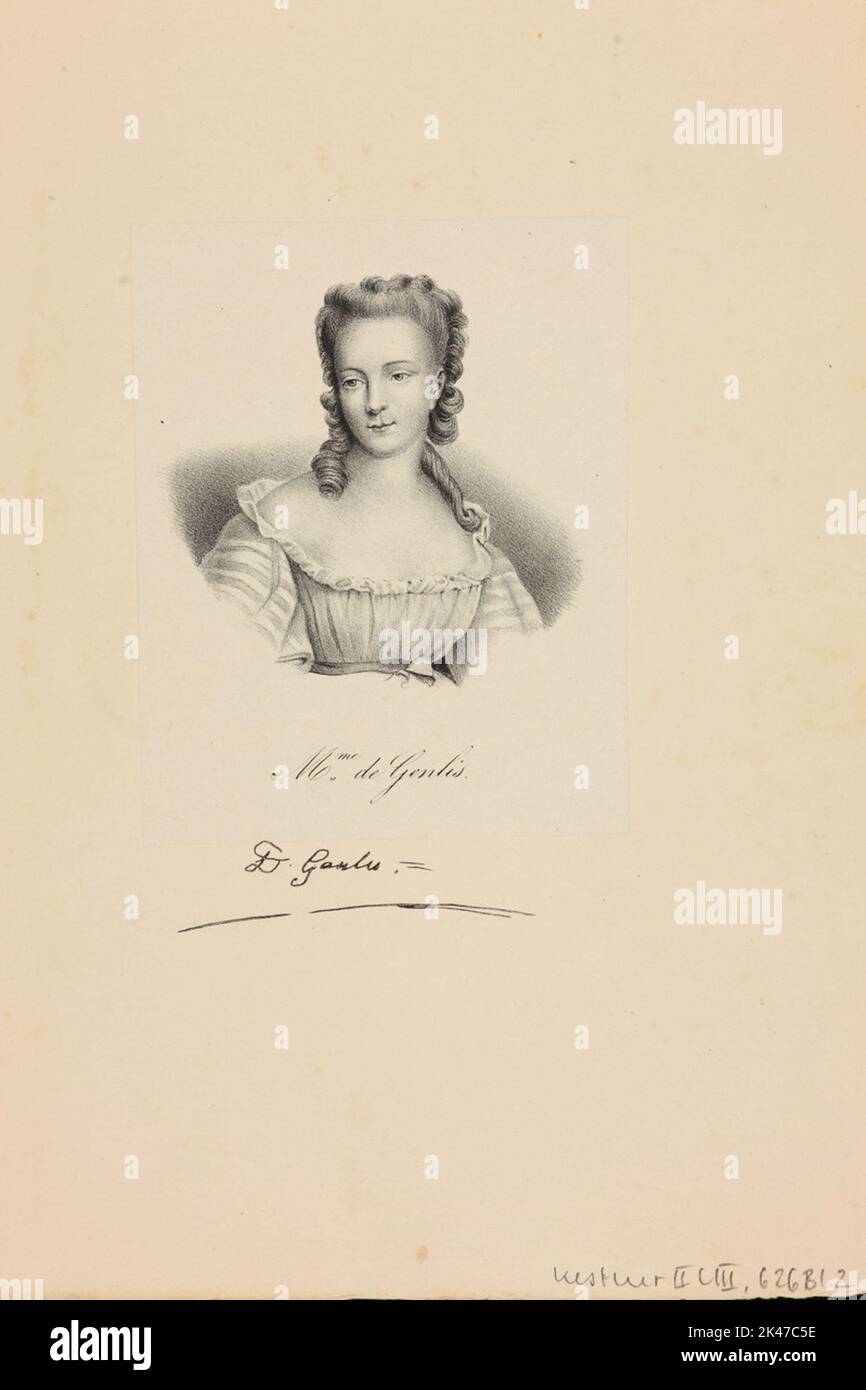 a a
alamy
a a
a a
a a
alamy
a a
Mme de Genlis.
a a
D. Genlis. =
a a
alamy
a a
a a a
Kestner II C III, 626 Bl 2
alamy
Image ID: 2K47C5E
www.alamy.com